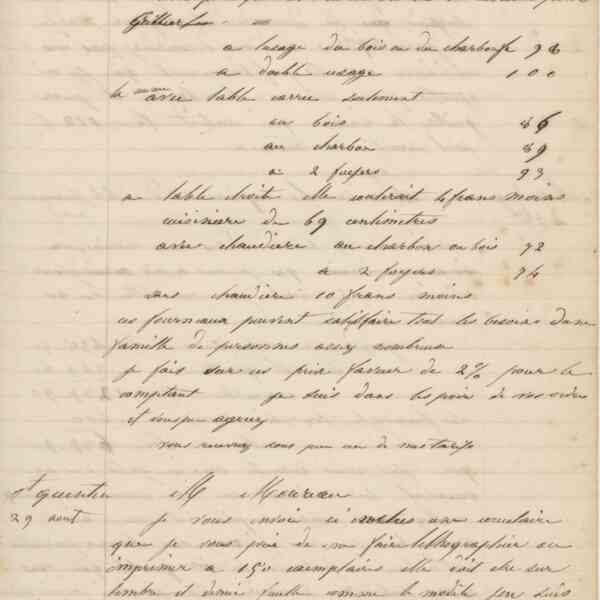 a lusage du bois ou du charbon f 98
a double usage 100
la meme avec table carree seulement
au bois 86
au charbon 89
a 2 foyers 93
a table droite elle couterait 4 frans moins
cuisiniere de 69 centimetres
avec chaudiere au charbon ou bois 92
a 2 foyers 94
sans chaudiere 10 frans moins
ces fourneaux peuvent satisfaire tout les besoins dune
famille de personnes assez nombreuse
je fais sur ces prix faveur de 2% pour le
comptant je suis dans lespoir de vos ordres
et vous prie agreez
vous recevrez sous peu un de mes tarifs
St quentin M Moureau
29 aout je vous envoi ci inclus une circulaire
que je vous prie de me faire lithographier ou
imprimer a 150 exemplaires elle doit etre sur
timbre et demie feuille comme le modele jen suis